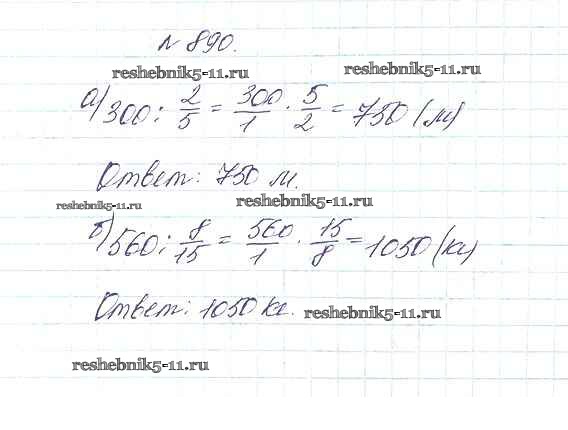 № 890.
reshebnik5-11.ru reshebnik5-11.ru
а) 300 : 2/5 = 300/1 · 5/2 = 750 (м)
Ответ: 750 м.
reshebnik5-11.ru reshebnik5-11.ru
б) 560 : 8/15 = 560/1 · 15/8 = 1050 (кг)
Ответ: 1050 кг.
reshebnik5-11.ru
reshebnik5-11.ru